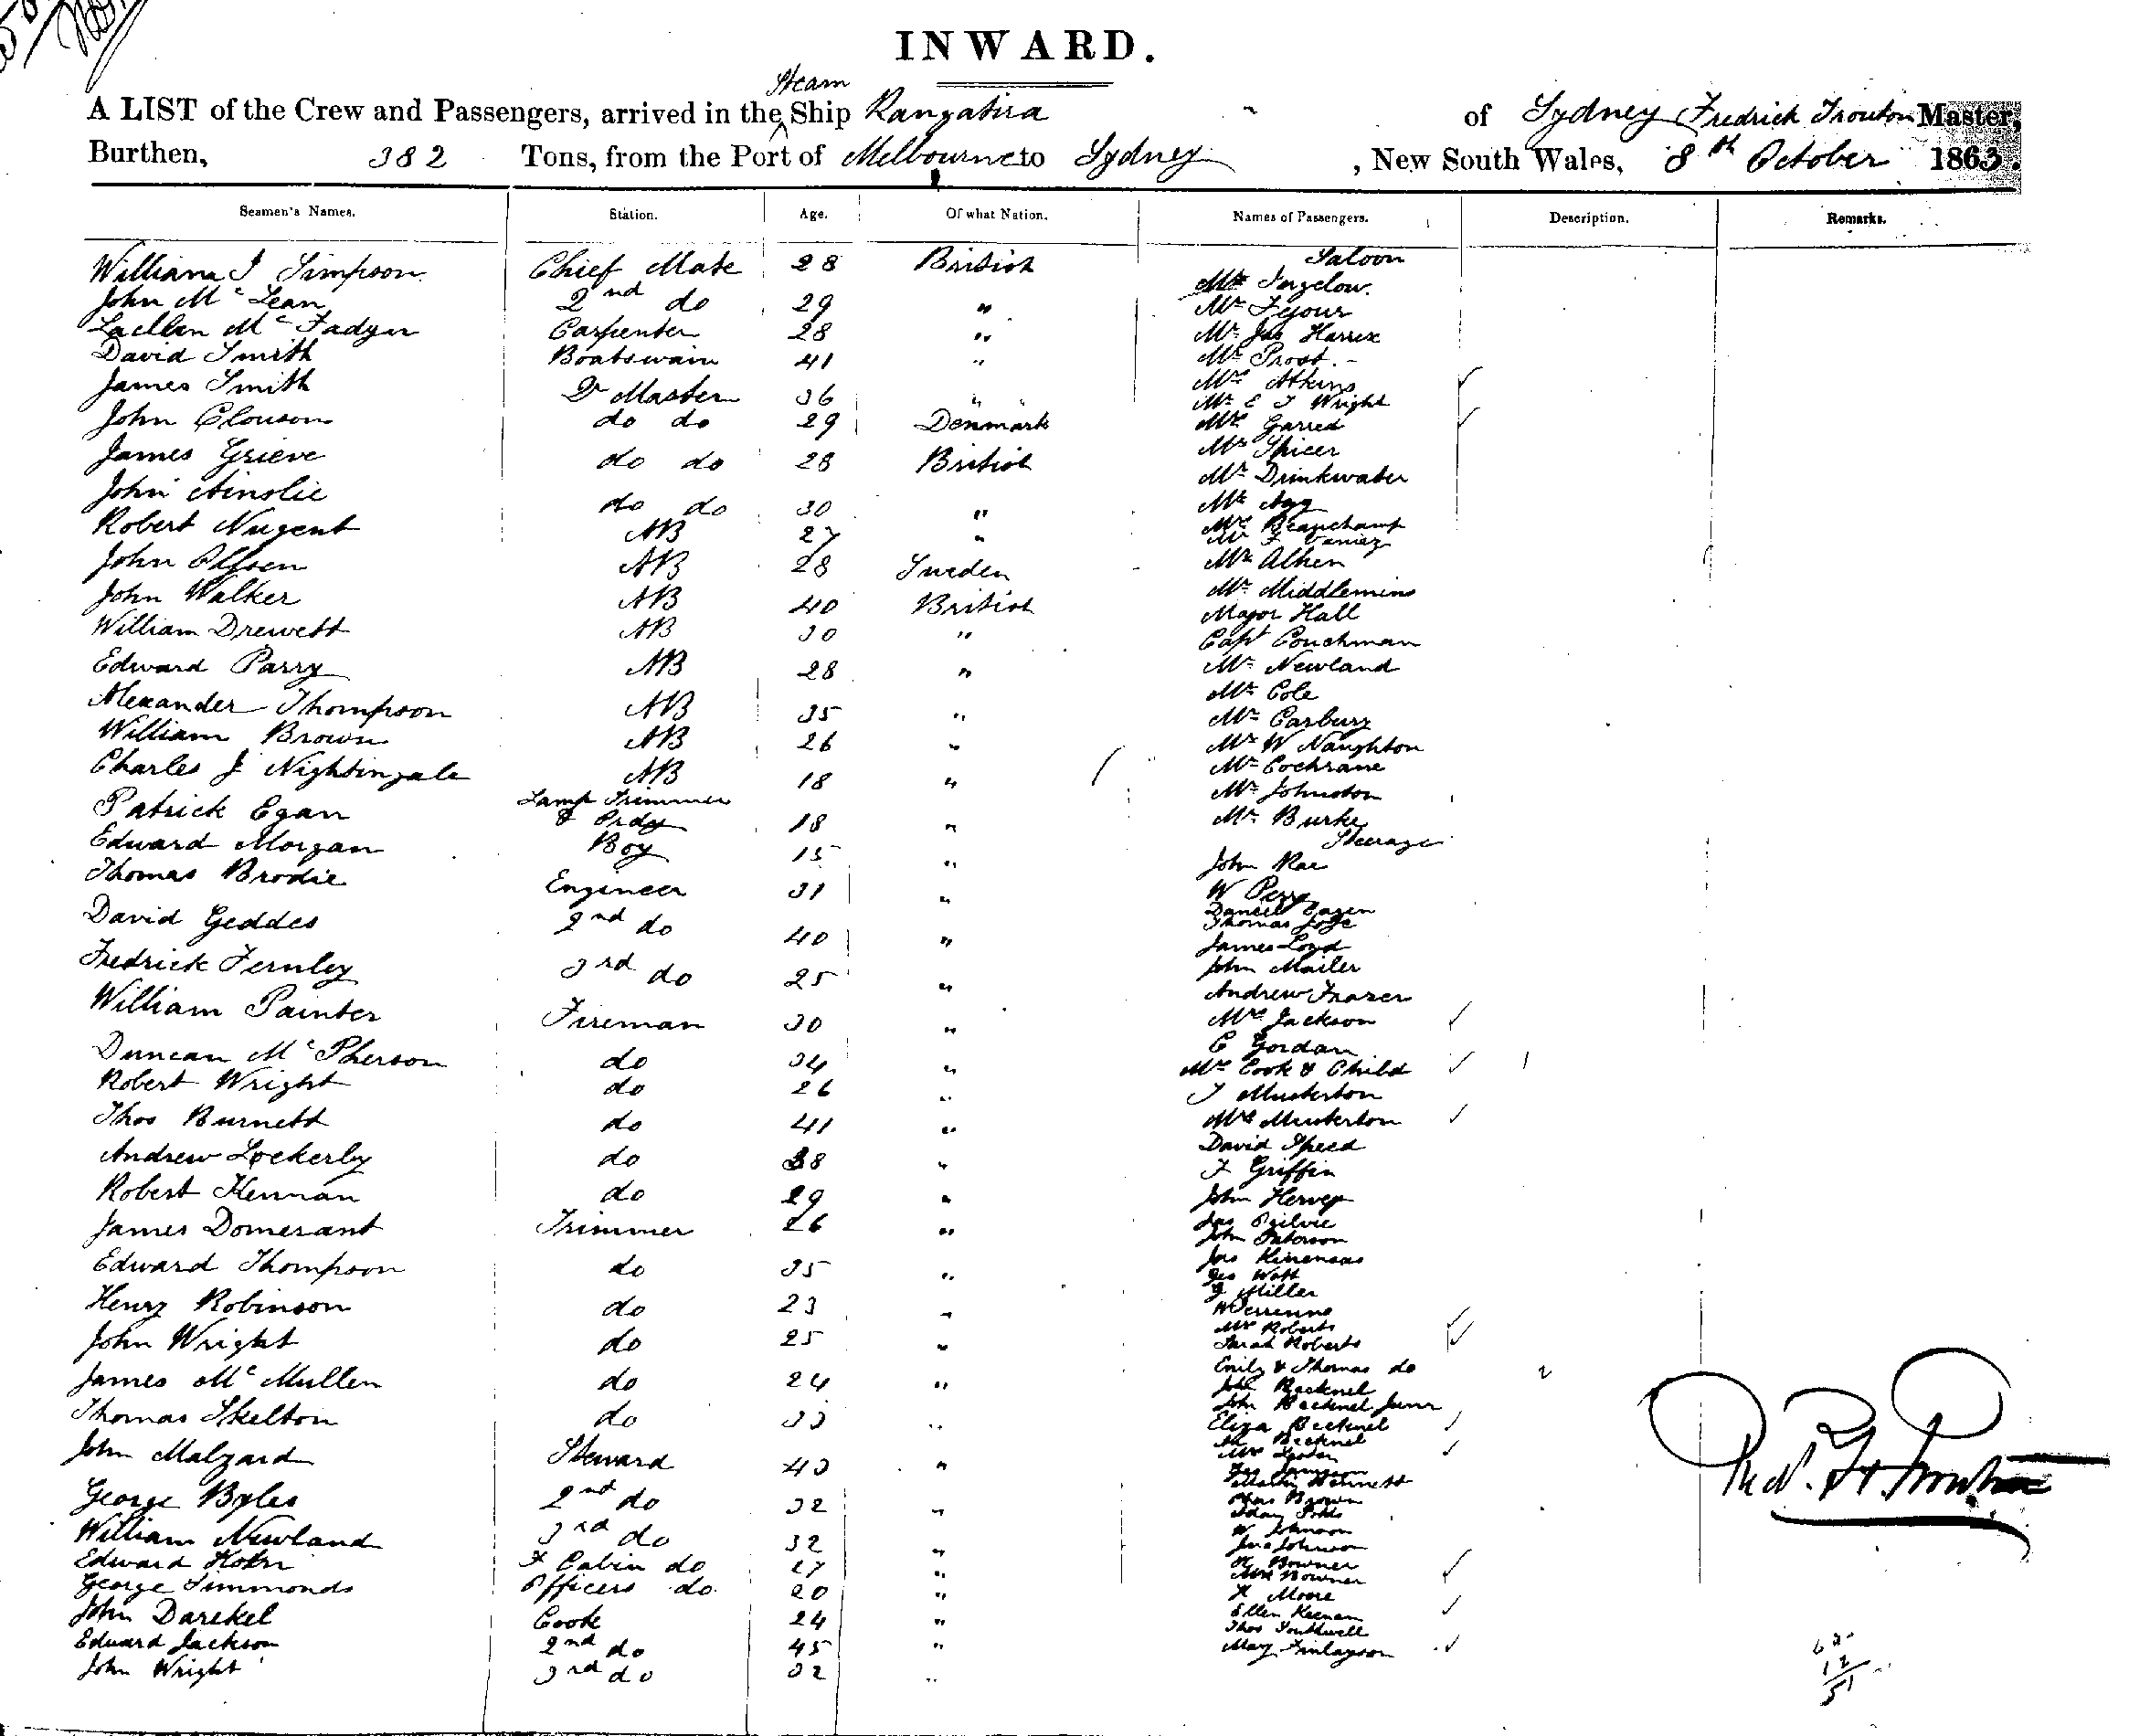 INWARD.
Steam
A LIST of the Crew and Passengers, arrived in the Ship Rangatira of Sydney Fredrick Trouton Master,
Burthen, 382 Tons, from the Port of Melbourne to Sydney, New South Wales, 8th October 1863.
Seamen's Names. Station. Age. Of what Nation. Names of Passengers. Description. Remarks.
Saloon
William J Simpson Chief Mate 28 British
John McLean 2nd do 29 "
Lachlan McFadyen Carpenter 28 "
David Smith Boatswain 41 "
James Smith Qr Master 36 "
John Clouson do do 29 Denmark
James Grieve do do 28 British
John Ainslie do do 30 "
Robert Nugent AB 27 "
John Olfsen AB 28 Sweden
John Walker AB 40 British
William Drewett AB 30 "
Edward Parry AB 28 "
Alexander Thompson AB 35 "
William Brown AB 26 "
Charles J Nightingale AB 18 "
Patrick Egan Lamp Trimmer & Ordy 18 "
Edward Morgan Boy 15 "
Thomas Brodie Engineer 31 "
David Geddes 2nd do 40 "
Fredrick Fernley 3rd do 25 "
William Painter Fireman 30 "
Duncan McPherson do 34 "
Robert Wright do 26 "
Thos Burnett do 41 "
Andrew Lockerby do 38 "
Robert Kennan do 29 "
James Domerant Trimmer 26 "
Edward Thompson do 35 "
Henry Robinson do 23 "
John Wright do 25 "
James McMullen do 24 "
Thomas Skelton do 33 "
John Malzard Steward 43 "
George Byles 2nd do 32 "
William Newland 3rd do 32 "
Edward F Cabin do 27 "
George Simmonds Officers do 20 "
John Darekel Cook 24 "
Edward Jackson 2nd do 45 "
John Wright 3rd do 32 "
Mr Ingelow
Mr
Mr Jas Harrex
Mr Prost
Mrs Atkins
Mr E J Wright
Mrs Garred
Mr Spicer
Mr Drinkwater
Mr Agg
Mr Beauchamp
Mr F
Mr Alken
Mr Middlemins
Major Hall
Capt Couchman
Mr Newland
Mr Cole
Mr Carbury
Mr W Naughton
Mr Cochrane
Mr Johnston
Mr Burke
Steerage
John Rae
W Perry
Daniel
Thomas
James Loyd
John Mailer
Andrew Frazer
Mrs Jackson
C Gordan
Mrs Cook & Child
J Musterton
Mrs Musterton
David Speed
F Griffin
John Hervey
Jas Ogilvie
John Paterson
Jas
Geo Watt
J Miller
Mrs Roberts
Sarah Roberts
Emily & Thomas do 2
John Becknel
John Becknel Junr
Eliza Becknel
Becknel
Mrs
Brown
W Johnson
Jno Johnson
H Bowner
Mrs Bowner
H Moore
Ellen Keenan
Thos Southwell
Mary Finlayson